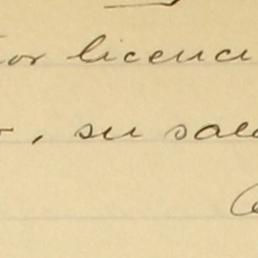 or licenci
, su sal